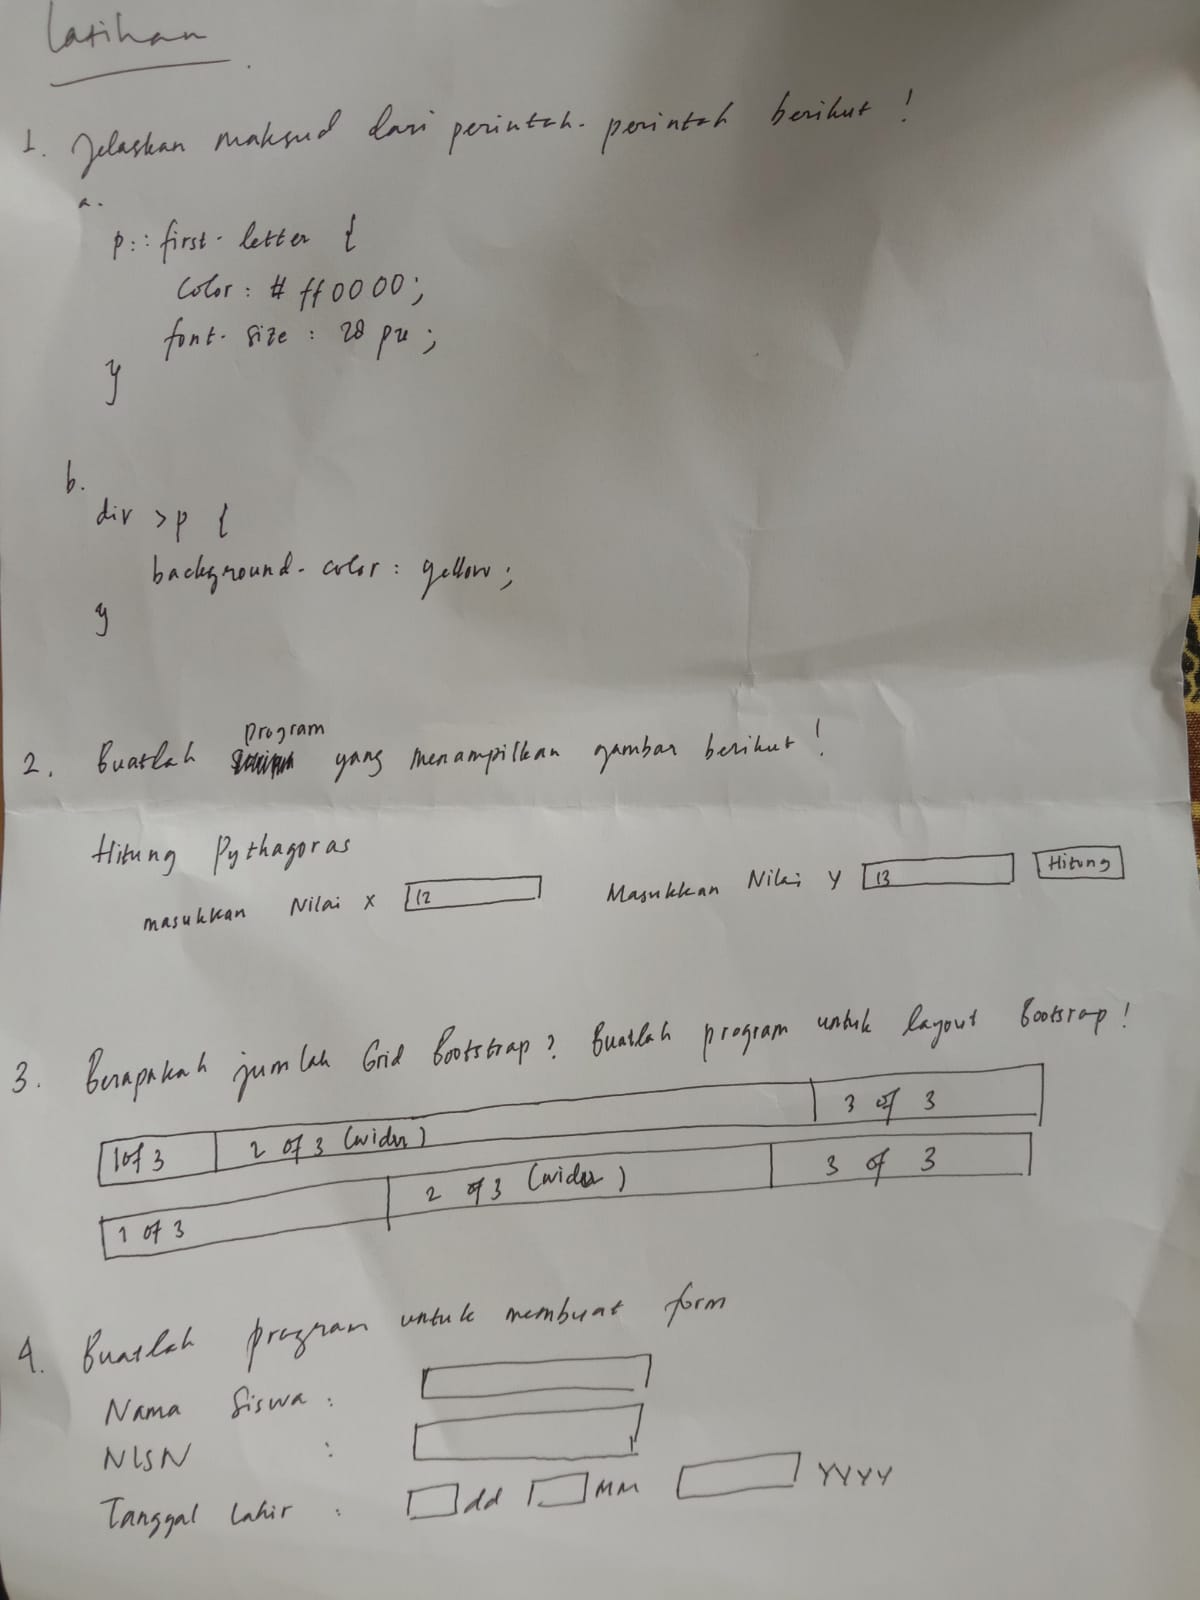 Latihan
1. Jelaskan maksud dari perintah-perintah berikut !
a.
p::first-letter {
color: #ff0000;
font-size: 28 px;
}
b.
div >p {
background-color: yellow;
}
2. Buatlah program yang menampilkan gambar berikut !
Hitung Pythagoras
masukkan Nilai x 12 Masukkan Nilai y 13 Hitung
3. Berapakah jumlah Grid Bootstrap? Buatlah program untuk layout Bootsrap!
1 of 3 2 of 3 (wider) 3 of 3
1 of 3 2 of 3 (wider) 3 of 3
4. Buatlah program untuk membuat form
Nama Siswa :
NISN :
Tanggal Lahir : dd MM YYYY